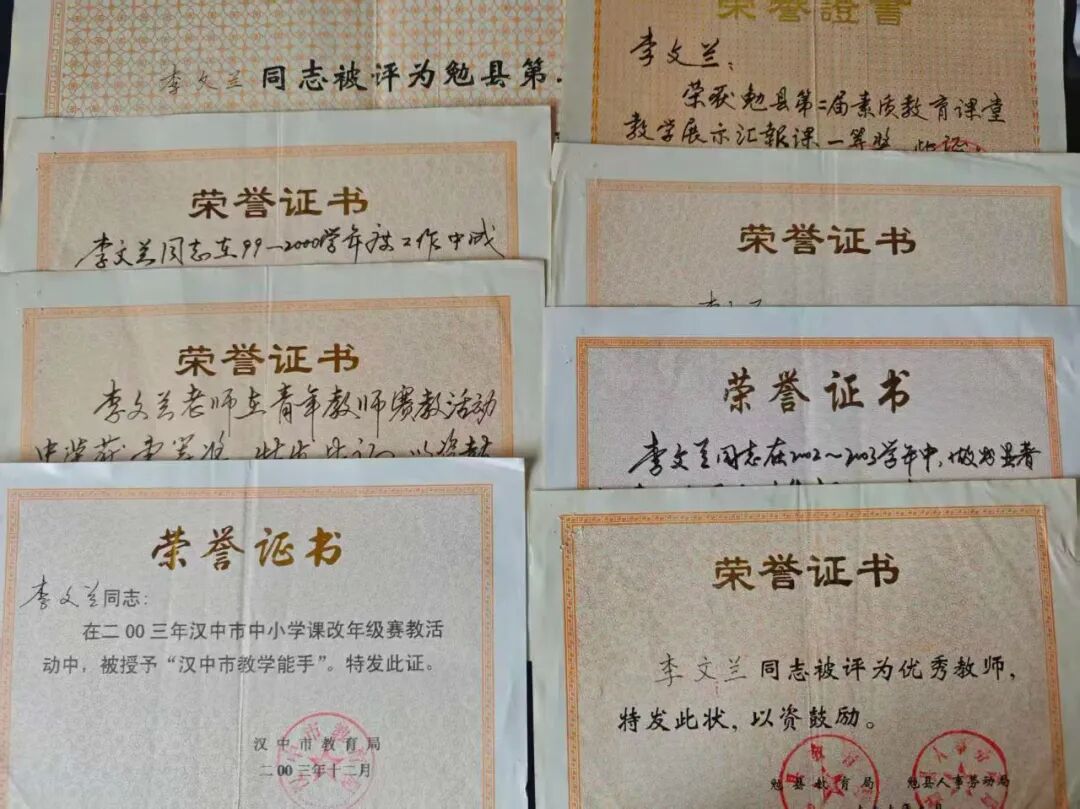 李文兰 同志被评为勉县第
荣誉證書
李文兰：
荣获勉县第二届素质教育课堂
教学展示汇报课一等奖，此证。
荣誉证书
李文兰同志在99—2000学年度工作中成
荣誉证书
荣誉证书
李文兰老师在青年教师赛教活动
荣誉证书
李文兰同志在2002～2003学年中，
荣誉证书
李文兰同志：
在二00三年汉中市中小学课改年级赛教活
动中，被授予“汉中市教学能手”。特发此证。
汉中市教育局
二00三年十二月
荣誉证书
李文兰 同志被评为优秀教师，
特发此状，以资鼓励。
勉县教育局 勉县人事劳动局